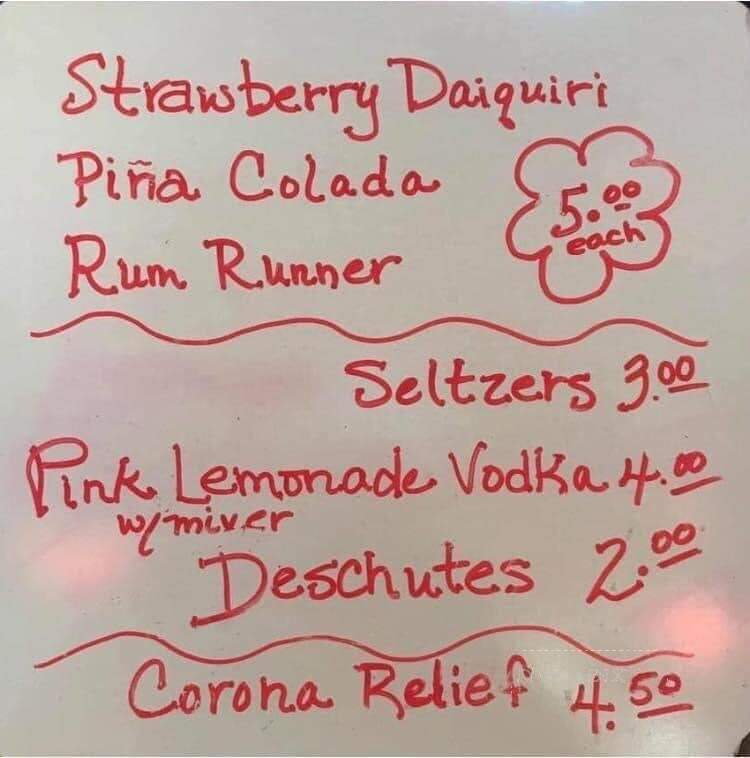 Strawberry Daiquiri
Piña Colada
5.00
each
Rum Runner
Seltzers 3.00
Pink Lemonade Vodka 4.00
w/mixer
Deschutes 2.00
Corona Relief 4.50